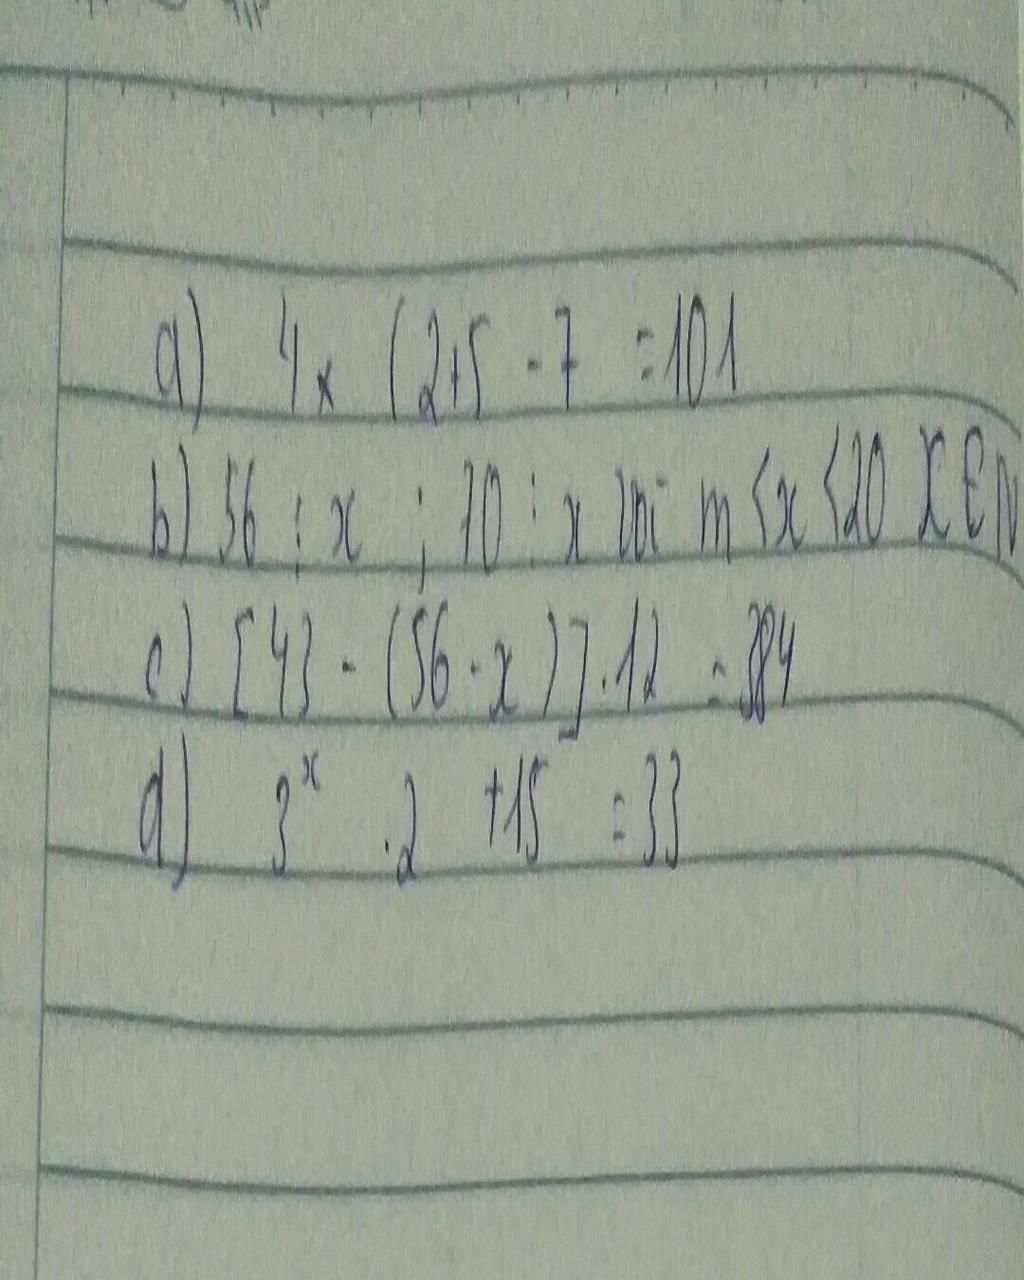 a) 4x (2+5 - 7 = 101
b) 56 : x ; 70 : x với m < x < 20 X ∈ N
c) [43 - (56 - x)] . 12 = 384
d) 3ˣ . 2 + 15 = 33